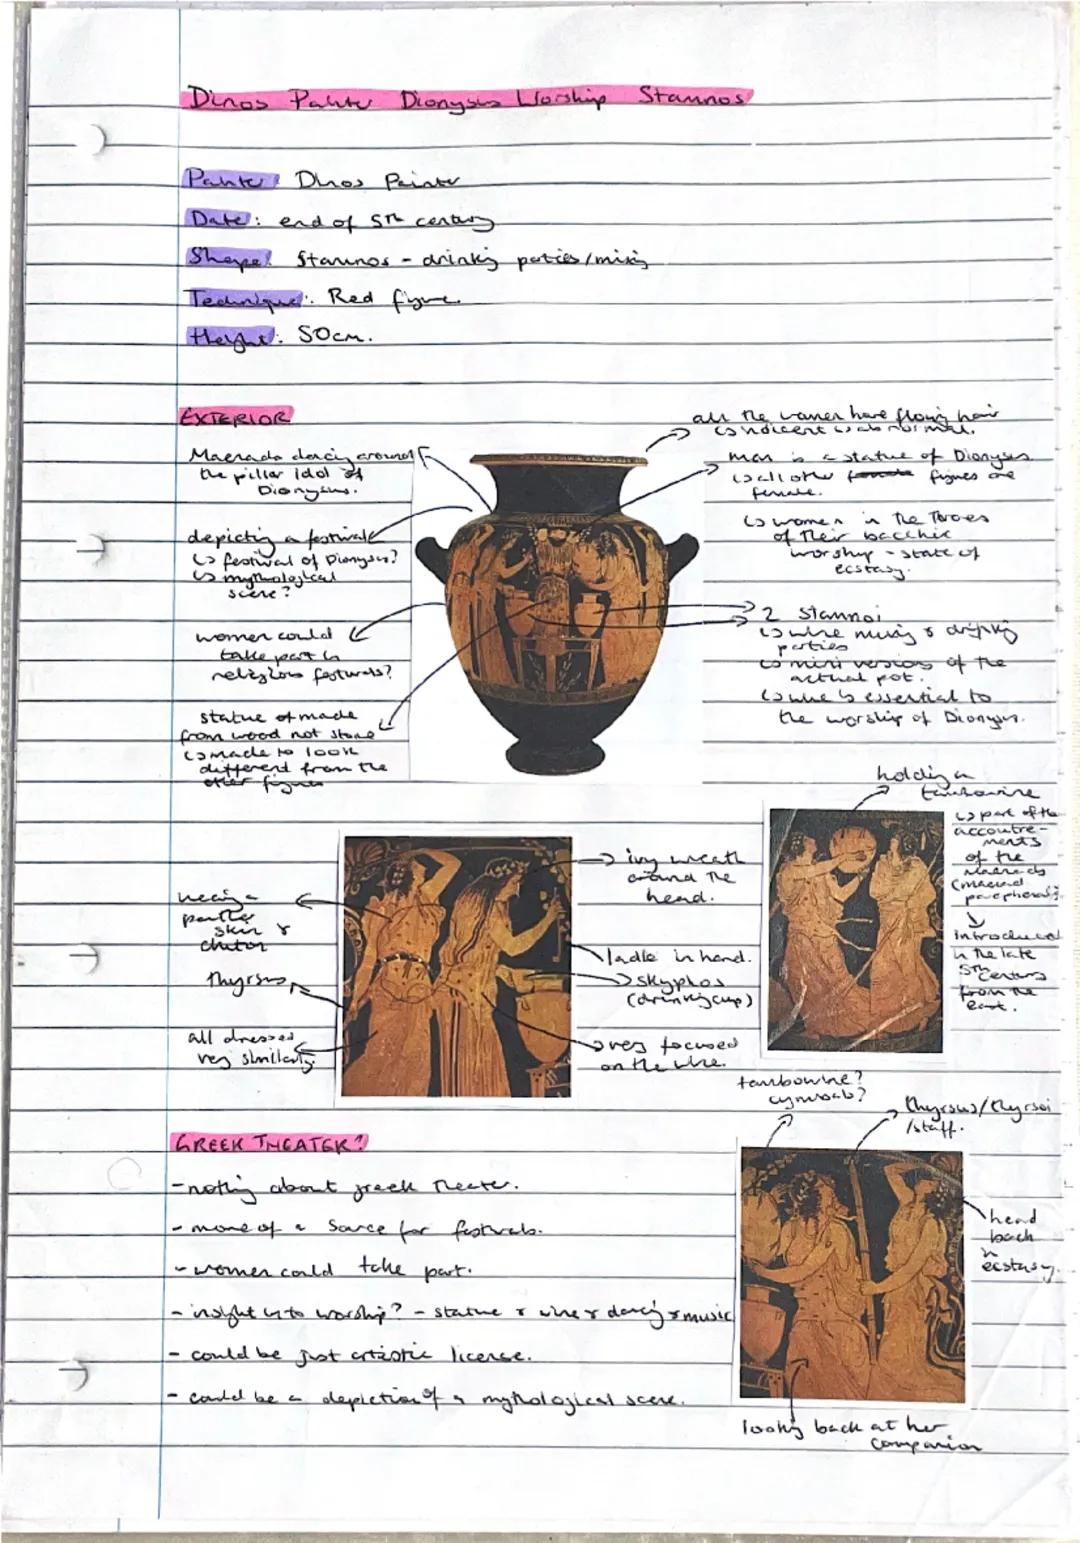 Dinos Painter Dionysus Worship Stamnos
Painter: Dinos Painter
Date: end of 5th century
Shape: Stamnos - drinking parties/mixing
Technique: Red figure.
Height: 50cm.
EXTERIOR
Maenads dancing around
the pillar idol of
Dionysus.
depicting a festival
↳ festival of Dionysus?
↳ mythological
scene?
women could
take part in
religious festivals?
statue of made
from wood not stone
↳ made to look
different from the
other figures
all the women have flowing hair
↳ indecent & abnormal.
man is a statue of Dionysus
↳ all other figures are
female.
↳ women in the throes
of their bacchic
worship - state of
ecstasy.
2 stamnoi
↳ wine mixing & drinking
parties
↳ mini versions of the
actual pot.
↳ wine is essential to
the worship of Dionysus.
wearing a
panther
skin &
chiton
thyrsus
all dressed
very similarly.
ivy wreath
around the
head.
ladle in hand.
skyphos
(drinking cup)
very focused
on the wine.
holding a
tambourine
↳ part of the
accoutre-
ments
of the
Maenads
(maenad
introduced
in the late
5th century
from the
East.
GREEK THEATER?
- nothing about greek theater.
- more of a source for festivals.
- women could take part.
- insight into worship? - statue & wine & dancing & music
- could be just artistic licence.
- could be a depiction of a mythological scene.
tambourine?
cymbals?
thyrsus/thyrsoi
/staff.
head
back
in
ecstasy.
looking back at her
companion